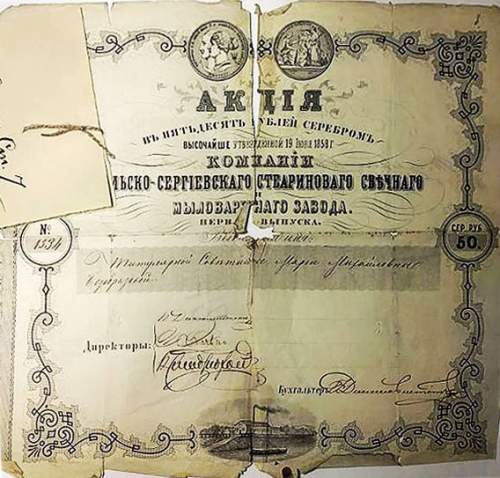 Стр. 7
АКЦІЯ
ВЪ ПЯТЬДЕСЯТЪ РУБЛЕЙ СЕРЕБРОМЪ
ВЫСОЧАЙШЕ УТВЕРЖДЕННОЙ 19 ІЮНЯ 1858 Г.
КОМПАНІИ
ЛЬСКО-СЕРГІЕВСКАГО СТЕАРИНОВАГО СВѢЧНАГО
И
МЫЛОВАРЕННАГО ЗАВОДА.
ПЕРВ ВЫПУСКА.
№
1534
СЕР. РУБ.
50.
Титулярной Совѣтницѣ Марьѣ Михайловнѣ
Директоры:
Бухгалтеръ